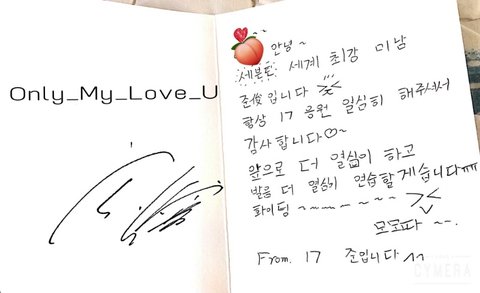 Only_My_Love_U
안녕~
세븐틴 세계 최강 미남
준俊입니다 ><
항상 17 응원 열심히 해주셔서
감사합니다♡~
앞으로 더 열심이 하고
발음 더 열심히 연습할게습니다ㅠㅠ
화이팅~~~~~~ ><
모모파~~.
From. 17 준입니다^^
CYMERA